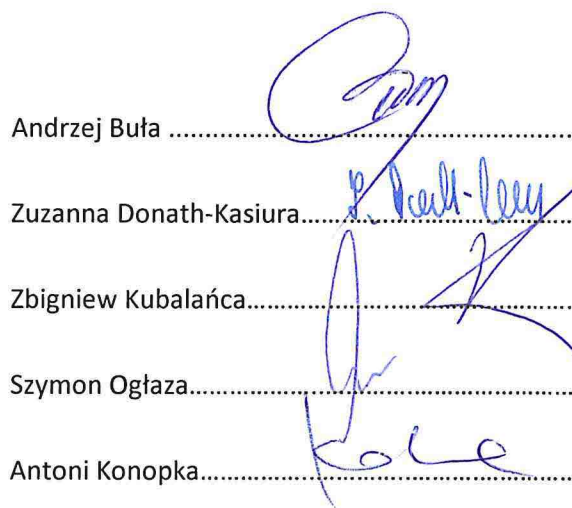 Andrzej Buła ..........................................................
Zuzanna Donath-Kasiura......................................
Zbigniew Kubalańca..............................................
Szymon Ogłaza......................................................
Antoni Konopka.....................................................